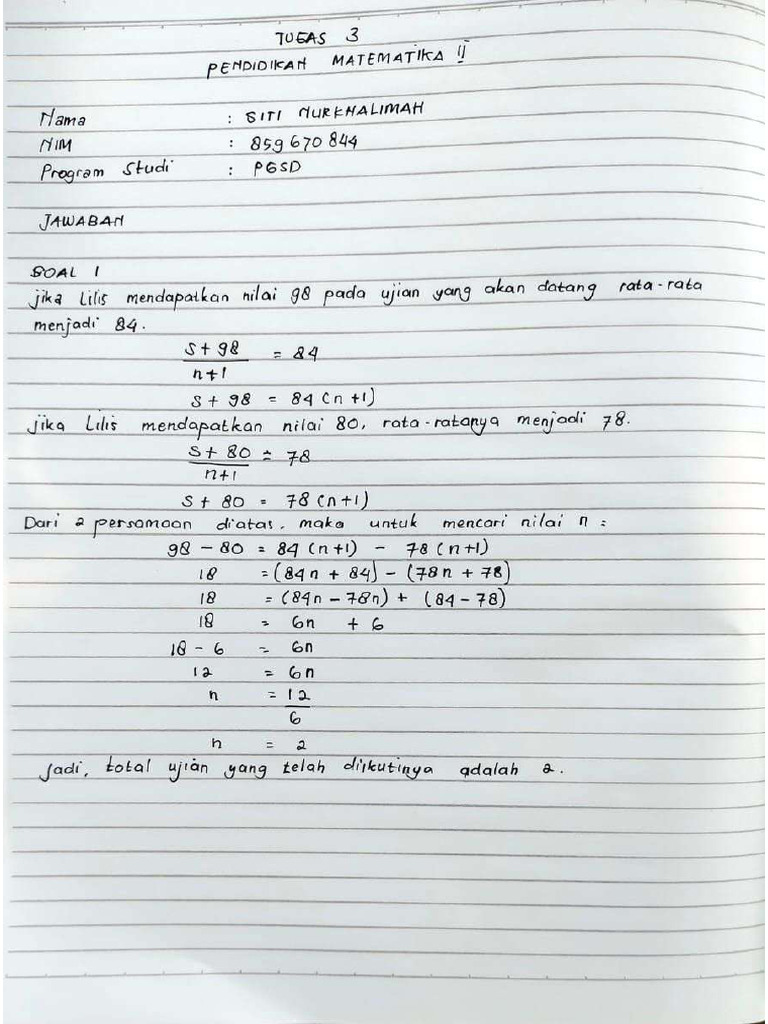 TUGAS 3
PENDIDIKAN MATEMATIKA II
Nama : SITI NURKHALIMAH
NIM : 859670844
Program Studi : PGSD
JAWABAN
SOAL 1
jika Lilis mendapatkan nilai 98 pada ujian yang akan datang rata-rata
menjadi 84.
s + 98 = 84
n+1
s + 98 = 84(n+1)
jika Lilis mendapatkan nilai 80, rata-ratanya menjadi 78.
s + 80 = 78
n+1
s + 80 = 78(n+1)
Dari 2 persamaan diatas, maka untuk mencari nilai n :
98 - 80 = 84(n+1) - 78(n+1)
18 = (84n + 84) - (78n + 78)
18 = (84n - 78n) + (84 - 78)
18 = 6n + 6
18 - 6 = 6n
12 = 6n
n = 12
6
n = 2
Jadi, total ujian yang telah diikutinya adalah 2.